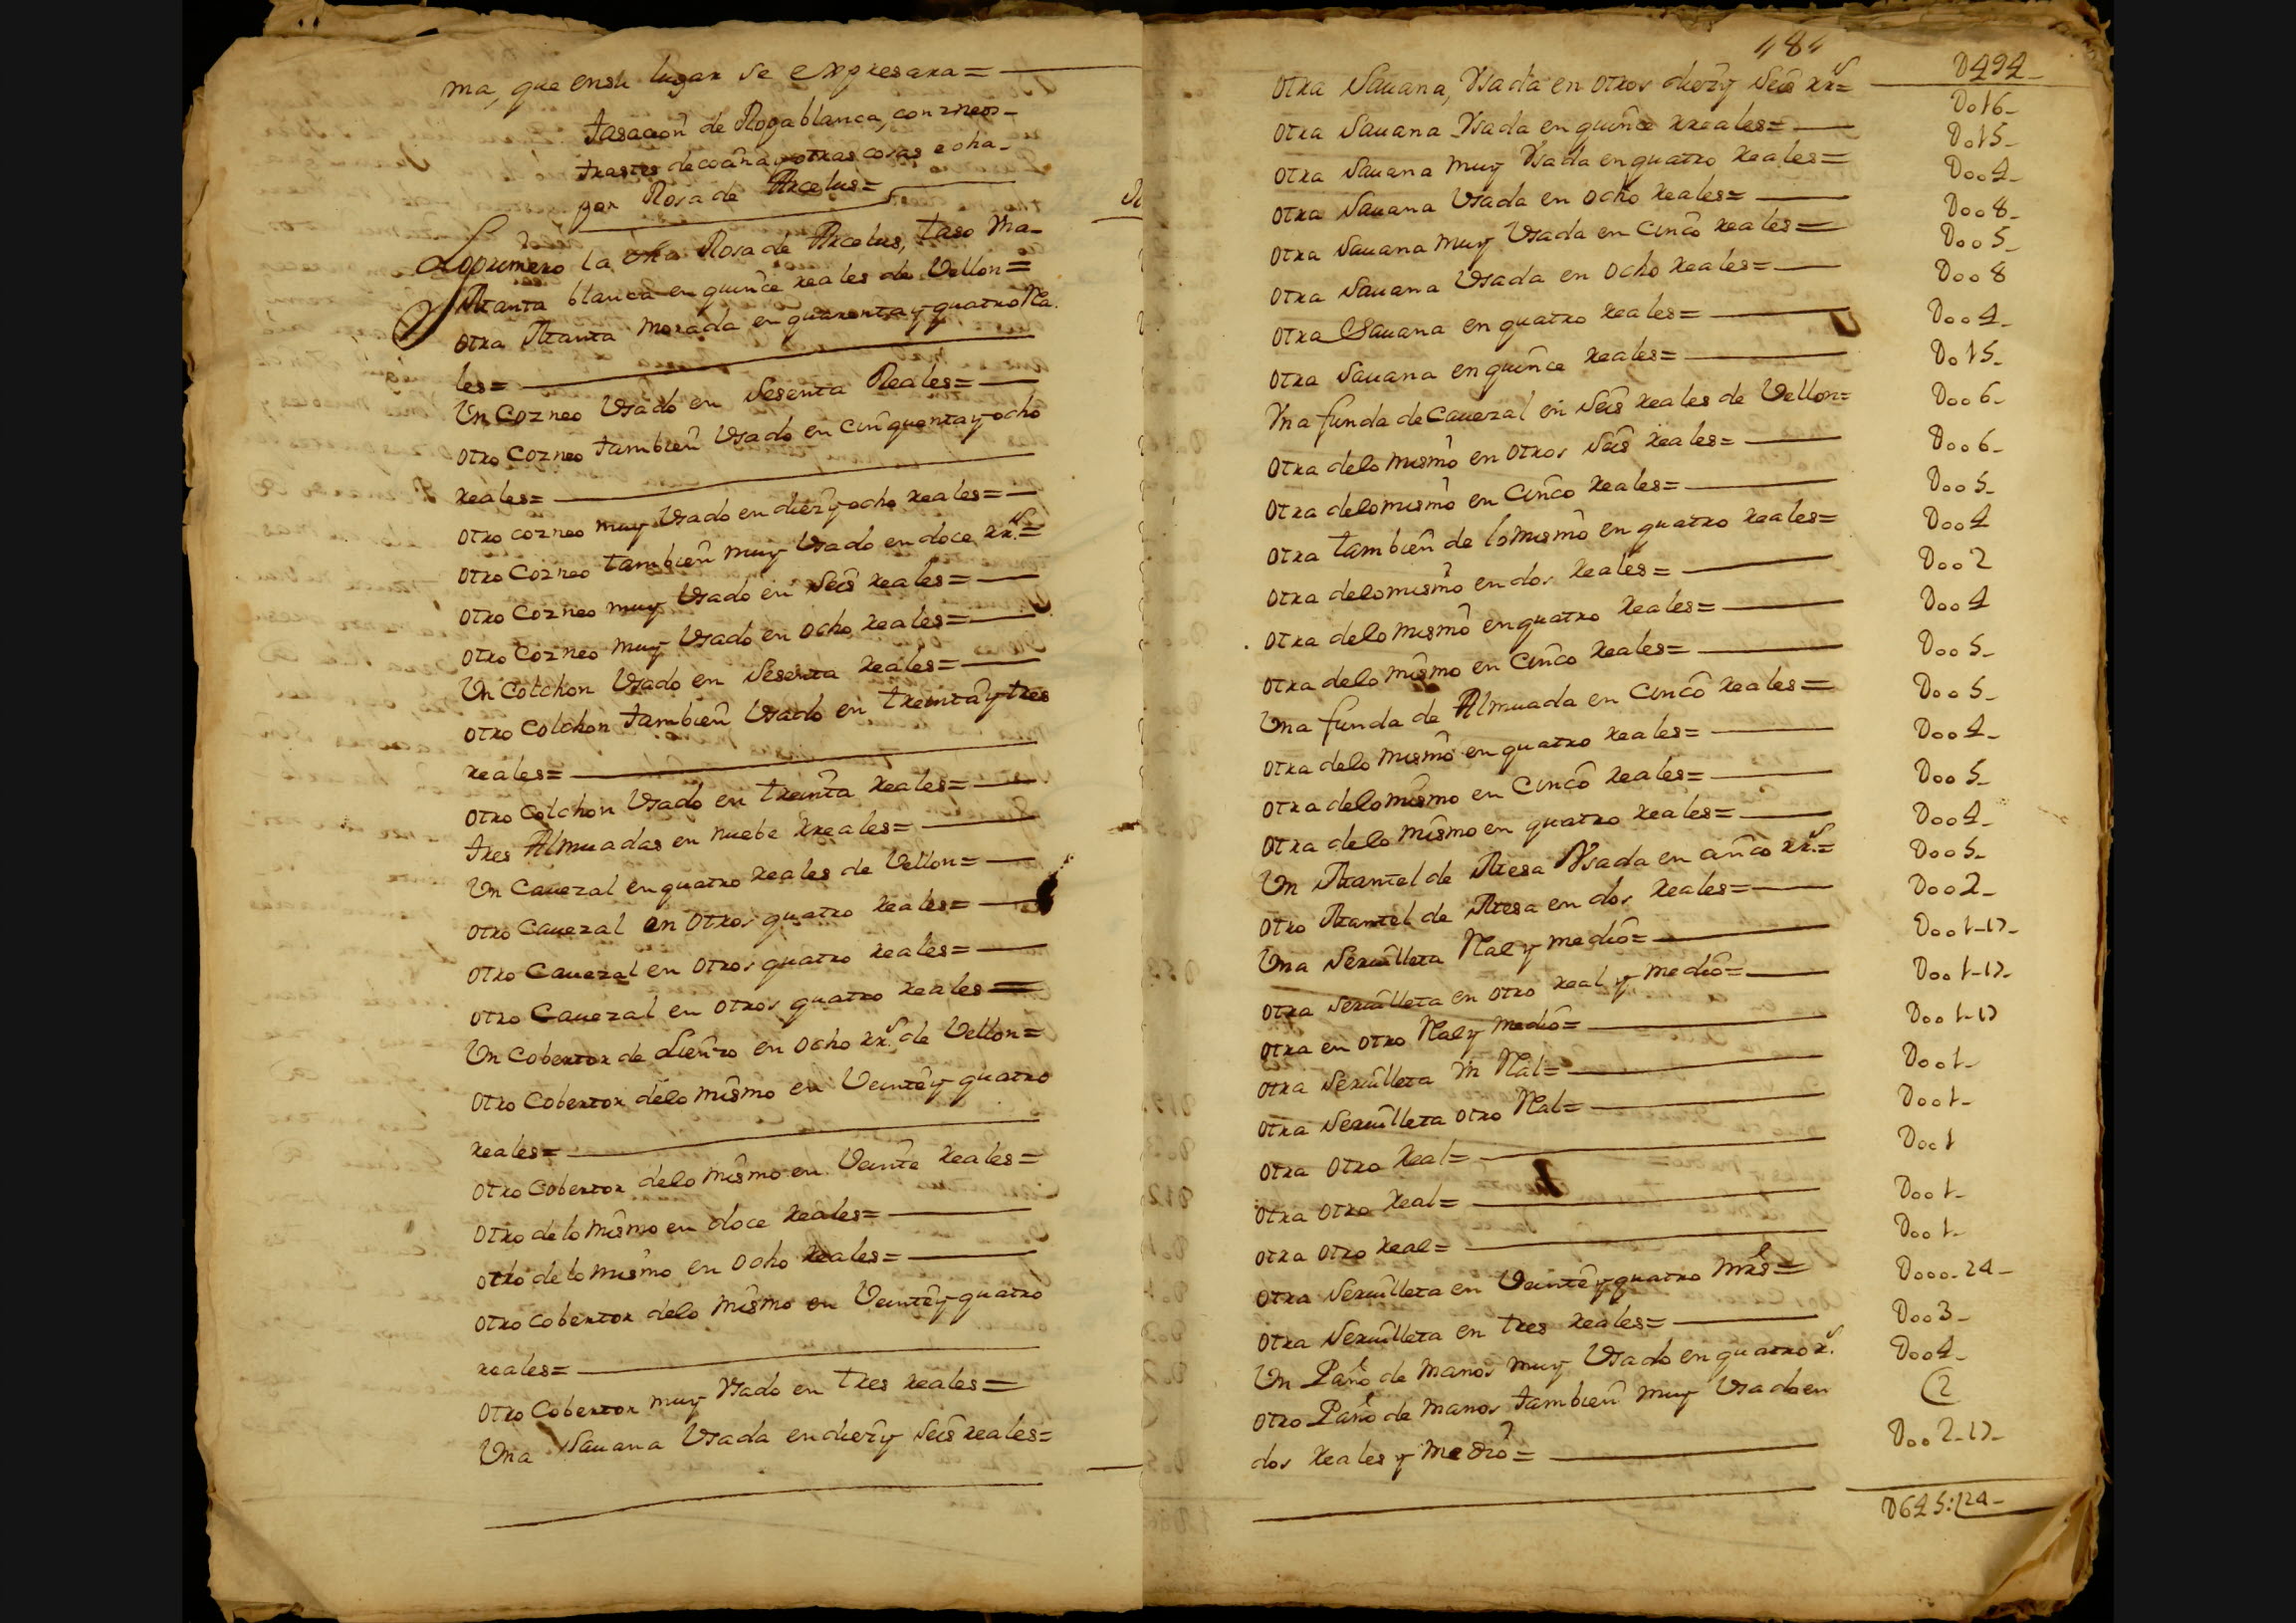 ma, que ensu lugar se expresara=
tasacion de Ropa blanca, corneos-
trastes de cocina y otras cosas echa-
por Rosa de Arcelus=
Lo primero la dha Rosa de Arcelus, taso Ma-
Manta blanca en quince reales de Vellon=
Otra Manta morada en quarenta y quatro Rea.
les=
Un Corneo Usado en Sesenta Reales=
otro Corneo tambien Usado en cinquenta y ocho
reales=
otro corneo muy Usado en diez y ocho reales=
otro Corneo tambien muy Usado en doce rr.s=
otro Corneo muy Usado en Seis reales=
otro Corneo muy Usado en ocho reales=
Un Colchon Usado en Sesenta reales=
otro Colchon tambien Usado en treinta y tres
reales=
otro Colchon Usado en treinta reales=
tres Almuadas en nuebe rreales=
Un Cauezal en quatro reales de Vellon=
otro Cauezal en otros quatro reales=
otro Cauezal en otros quatro reales=
otro Cauezal en otros quatro reales=
Un Cobertor de Lienzo en ocho rr.s de Vellon=
otro Cobertor delo mismo en Veinte y quatro
reales=
otro Cobertor delo mismo en Veinte reales=
otro de lo mismo en doce reales=
otro de lo mismo en ocho reales=
otro Cobertor delo mismo en Veinte y quatro
reales=
otro Cobertor muy Usado en tres reales=
Una Sauana Usada en diez y Seis reales=
484
D494-
otra Sauana, Usada en otros diez y Seis rr.s= D016-
otra Sauana Usada en quince rreales= D015-
otra Sauana muy Usada en quatro reales= D004-
otra Sauana Usada en ocho reales= D008-
otra Sauana muy Usada en Cinco reales= D005-
otra Sauana Usada en ocho reales= D008
otra Sauana en quatro reales= D004-
otra Sauana en quince reales= D015-
Una funda de Cauezal en Seis reales de Vellon= D006-
otra delo mismo en otros Seis reales= D006-
otra delo mismo en Cinco reales= D005-
otra tambien de lo mismo en quatro reales= D004
otra delo mismo en dos reales= D002
otra delo mismo en quatro reales= D004
otra delo mismo en Cinco reales= D005-
Una funda de Almuada en Cinco reales= D005-
otra delo mismo en quatro reales= D004-
otra delo mismo en Cinco reales= D005-
otra delo mismo en quatro reales= D004-
Un Mantel de Mesa Usada en cinco rr.s= D005-
otro Mantel de Mesa en dos reales= D002-
Una Seruilleta Real y medio= D001-17-
otra Seruilleta en otro real y medio= D001-17-
otra en otro Real y medio= D001-17
otra Seruilleta Vn Real= D001-
otra Seruilleta otro Real= D001-
otra otro Real= D001
otra otro Real= D001-
otra otro Real= D001-
otra Seruilleta en Veinte y quatro mrs= D000-24-
otra Seruilleta en tres reales= D003-
Un Paño de manos muy Usado en quatro r.s D004-
otro Paño de manos tambien muy Usado en
dos reales y medio= D002-17-
D645:24-